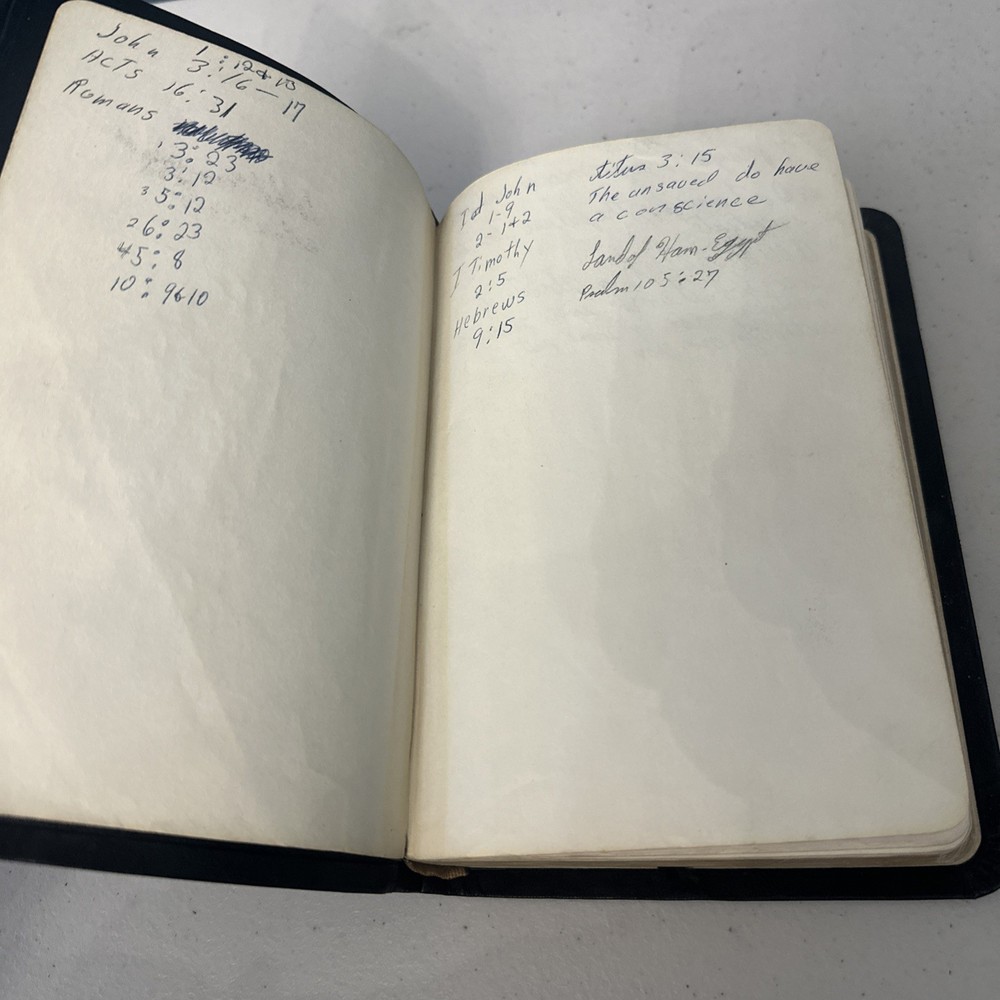 John 1:12&13
3:16-17
Acts 16:31
Romans
1 3:23
3:12
3 5:12
2 6:23
4 5:8
10:9&10
Ist John
1-9
2-1+2
I Timothy
2:5
Hebrews
9:15
titus 3:15
The unsaved do have
a conscience
Land of Ham-Egypt
Psalm 105:27